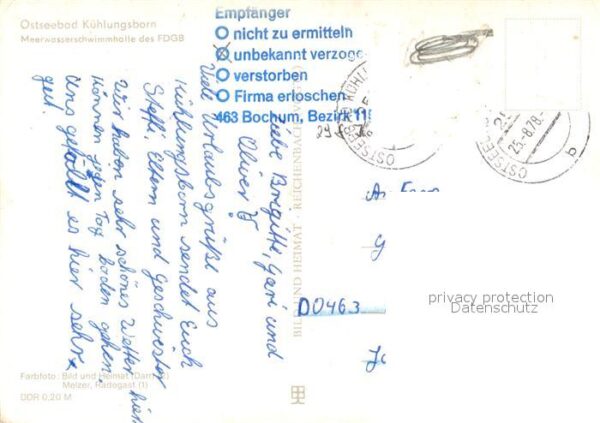 Ostseebad Kühlungsborn
Meerwasserschwimmhalle des FDGB
Empfänger
nicht zu ermitteln
unbekannt verzoge
verstorben
Firma erloschen
463 Bochum, Bezirk 11
Liebe Birgitte, Gari und
Oliver
Viele Urlaubsgrüße aus
Kühlungsborn sendet Euch
Steffi, Eltern und Geschwister
Wir haben sehr schönes Wetter hier
können jeden Tag baden gehen.
Uns gefällt es hier sehr
gut.
BILD UND HEIMAT · REICHENBACH
OSTSEEB
25.-8.78-
b
DO463
privacy protection
Datenschutz
Farbfoto: Bild und Heimat
Melzer, Radegast (1)
DDR 0,20 M